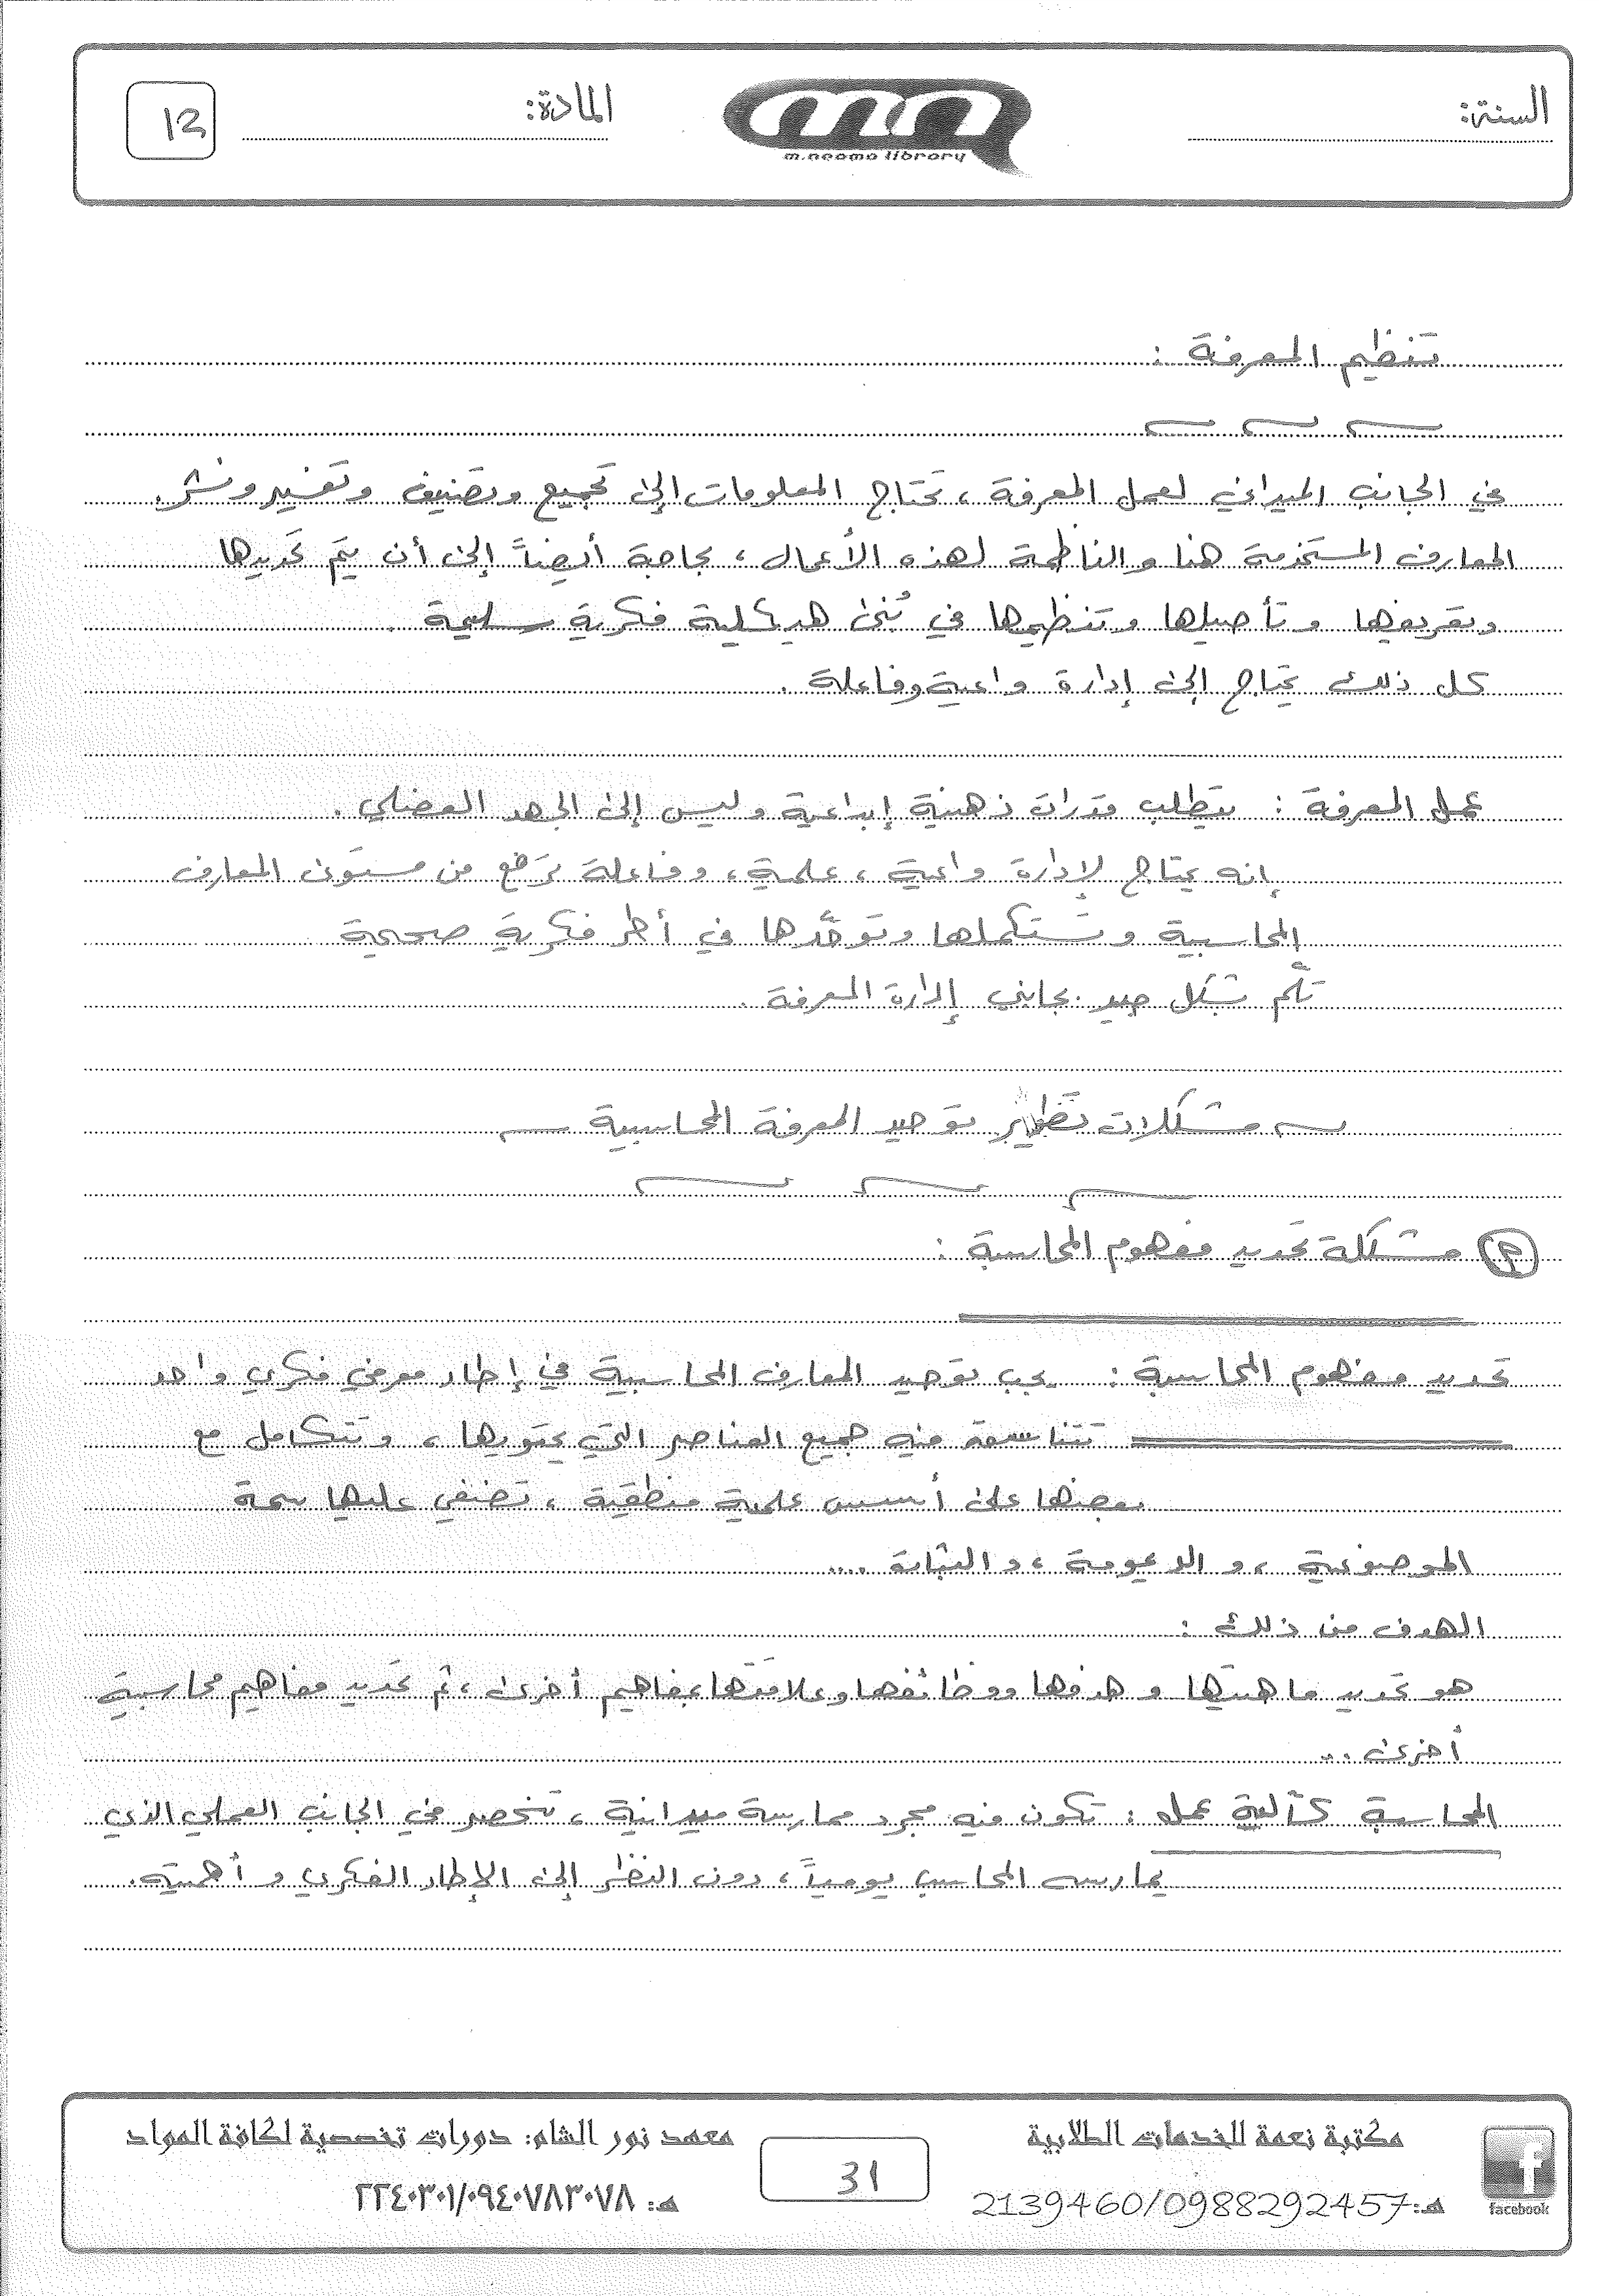 السنة:
m.neoma library
المادة:
12
تنظيم المعرفة :
في الجانب الميداني لعمل المعرفة ، تحتاج المعلومات إلى تجميع وتصنيف وتفسير ونشر.
المعارف المستخدمة هنا والناظمة لهذه الأعمال ، بحاجة أيضاً إلى أن يتم تحديدها
وتعريفها وتأصيلها وتنظيمها في بُنى هيكلية فكرية سليمة .
كل ذلك يحتاج إلى إدارة واعية وفاعلة .
عمل المعرفة : يتطلب قدرات ذهنية إبداعية وليس إلى الجهد العضلي .
إنه يحتاج لإدارة واعية ، علمية ، وفاعلة ترفع من مستوى المعارف
المحاسبية وتستكملها وتوحّدها في أطر فكرية صحيحة
تلّم بشكل جيد بجانبي إدارة المعرفة .
مشكلات توحيد المعرفة المحاسبية
مشكلة تحديد مفهوم المحاسبة :
تحديد مفهوم المحاسبة : يجب توحيد المعارف المحاسبية في إطار معرفي فكري واحد
تتناسق فيه جميع العناصر التي يحتويها ، وتتكامل مع
بعضها على أسس علمية منطقية ، تضفي عليها سمة
الموضوعية ، والديمومة ، والثبات ....
الهدف من ذلك :
هو تحديد ماهيتها وهدفها ووظائفها وعلاقتها بمفاهيم أخرى ، ثم تحديد مفاهيم محاسبية
أخرى ..
المحاسبة كآلية عمل : تكون فيه مجرد ممارسة ميدانية ، تنحصر في الجانب العملي الذي
يمارسه المحاسب يومياً ، دون النظر إلى الإطار الفكري وأهميته.
مكتبة نعمة للخدمات الطلابية
هـ: 2139460/0988292457
facebook
31
معهد نور الشام: دورات تخصصية لكافة المواد
هـ: ٢٢٤٠٣٠١/٠٩٤٠٧٨٣٠٧٨